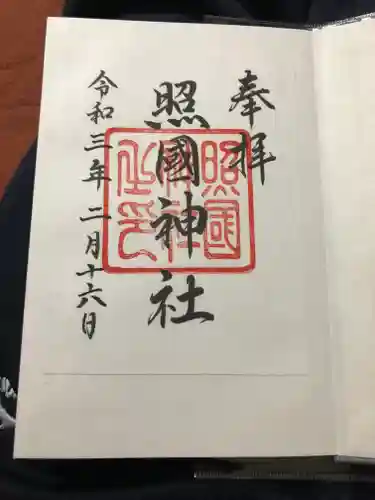 奉拝
照國神社
照國神社之印
令和三年二月十六日